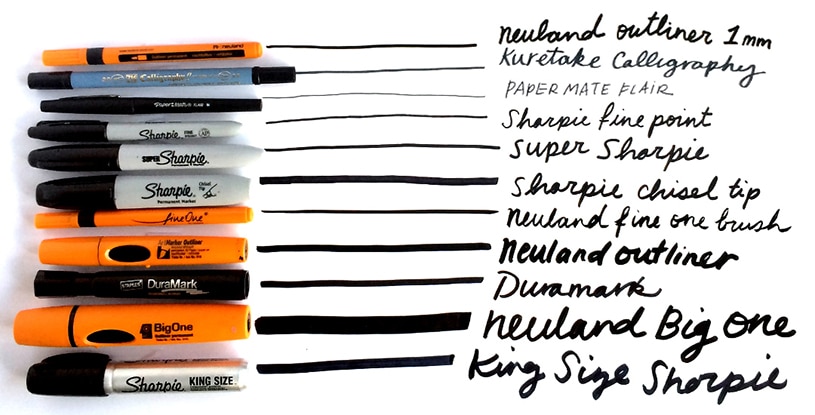 neuland neuland outliner 1mm
Calligraphy Kuretake Calligraphy
PAPER MATE FLAIR
Sharpie. FINE POINT Sharpie fine point
SUPER Sharpie. Permanent Marker Super Sharpie
Sharpie. Chisel Tip Permanent Marker Sharpie chisel tip
fineOne neuland fine one brush
Marker Outliner neuland outliner
STAPLES DuraMark Duramark
BigOne neuland Big One
Sharpie. KING SIZE. King Size Sharpie